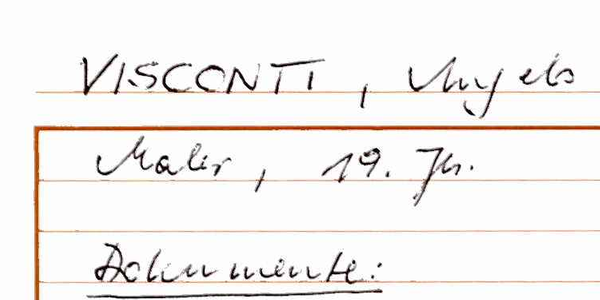 VISCONTI, Angelo
Maler, 19. Jh.
Dokumente: